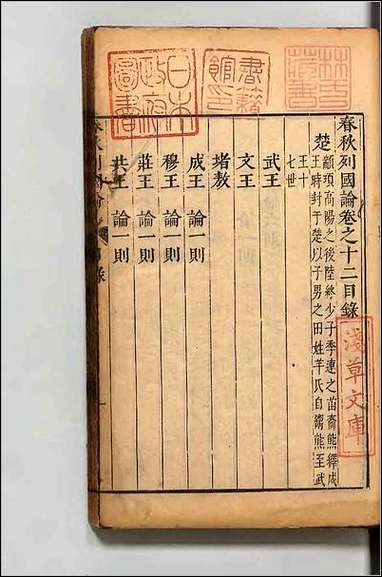 春秋列國論卷之十二目錄
楚
顓頊高陽之後陸終少子季連之苗裔熊繹成
王時封于楚以子男之田姓羋氏自鬻熊至武
王十
七世
武王
文王
堵敖
成王 論一則
穆王 論一則
莊王 論一則
共王 論一則
林氏
藏書
書籍
館印
日本
政府
圖書
淺草文庫